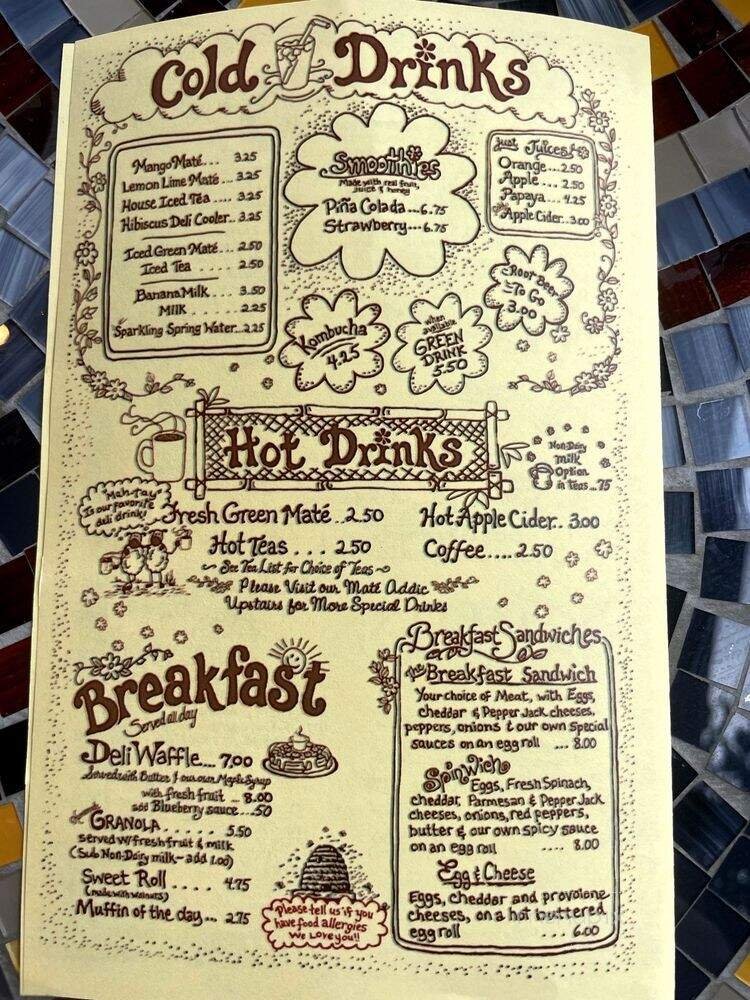 Cold Drinks
Mango Maté... 3.25
Lemon Lime Maté... 3.25
House Iced Tea .... 3.25
Hibiscus Deli Cooler.. 3.25
Iced Green Maté... 2.50
Iced Tea .... 2.50
Banana Milk .... 3.50
Milk ...... 2.25
Sparkling Spring Water...2.25
Smoothies
Made with real fruit,
juice & honey
Piña Colada...6.75
Strawberry...6.75
Just Juices!
Orange....2.50
Apple.... 2.50
Papaya.... 4.25
Apple Cider..3.00
Root Beer
To Go
3.00
Kombucha
4.25
when
available
GREEN
DRINK
5.50
Hot Drinks
Non-Dairy
Milk
Option
in teas...75
Mah-Tay
Is our favorite
deli drink!
Fresh Green Maté..2.50
Hot Teas .... 2.50
~ See Tea List for Choice of Teas ~
Hot Apple Cider.. 3.00
Coffee..... 2.50
Please Visit our Maté Addic
Upstairs for More Special Drinks
Breakfast
Served all day
Deli Waffle... 7.00
Served with Butter & our own Maple Syrup
with fresh fruit ... 8.00
add Blueberry sauce...50
GRANOLA ...... 5.50
served w/fresh fruit & milk
(Sub Non-Dairy milk - add 1.00)
Sweet Roll .... 4.75
(made with walnuts)
Muffin of the day... 2.75
Please tell us if you
have food allergies
We Love you!!
Breakfast Sandwiches
The Breakfast Sandwich
Your choice of Meat, with Eggs,
cheddar & Pepper Jack cheeses,
peppers, onions & our own special
sauces on an egg roll .... 8.00
Spinwich
Eggs, Fresh Spinach,
cheddar, Parmesan & Pepper Jack
cheeses, onions, red peppers,
butter & our own spicy sauce
on an egg roll .... 8.00
Egg & Cheese
Eggs, cheddar and provolone
cheeses, on a hot buttered
egg roll .... 6.00